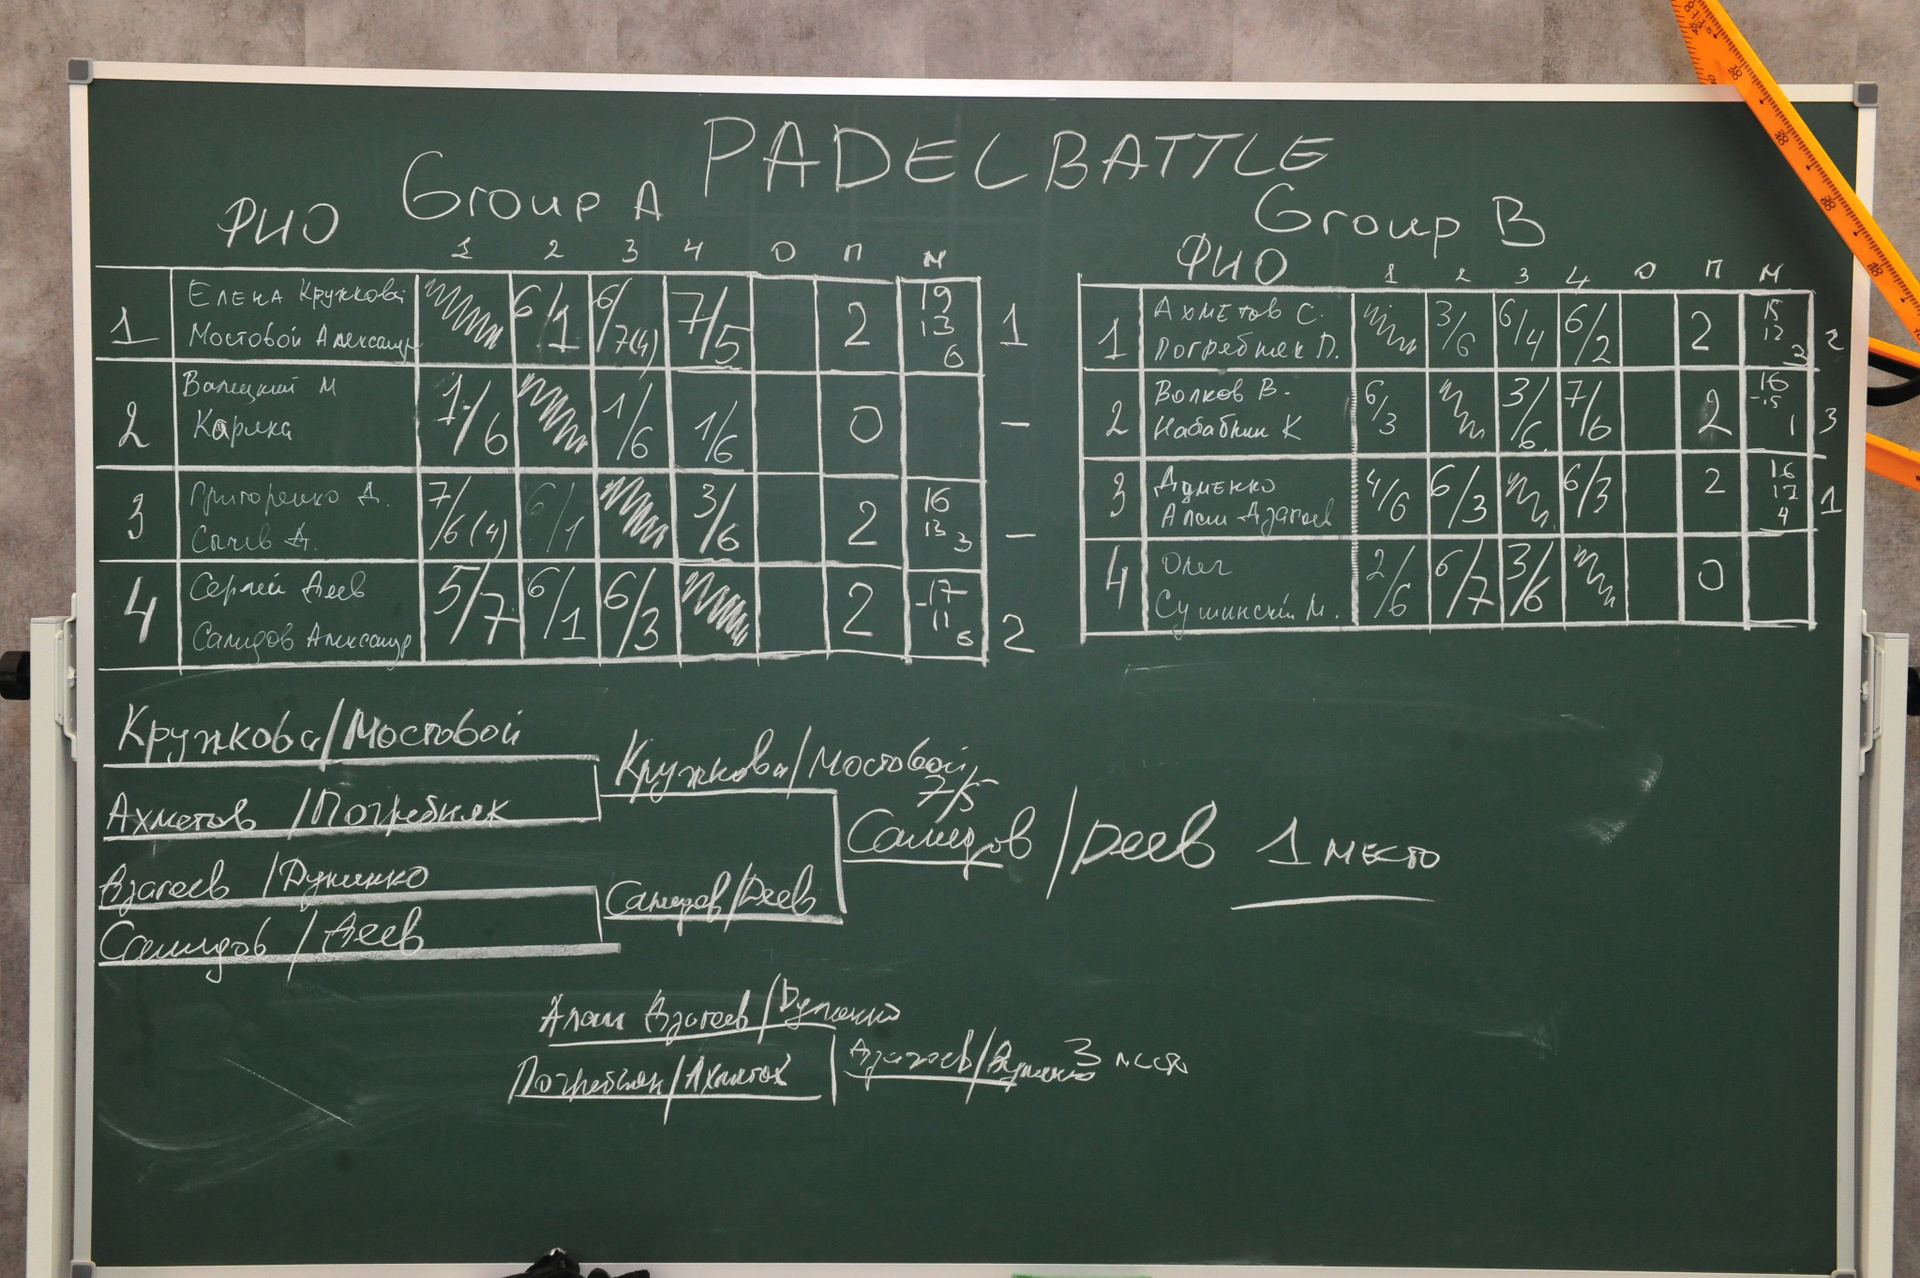 PADELBATTLE
Group A
ФИО 1 2 3 4 О П М
1 Елена Кружкова 6/1 6/7(4) 7/5 2 19 1
Мостовой Александр 13
6
2 Валецкий М 1/6 1/6 1/6 0 –
Карлка
3 Григоренко Д. 7/6(4) 6/1 3/6 2 16 –
Сычев А. 13 3
4 Сергей Деев 5/7 6/1 6/3 2 17 2
Саидов Александр 11
6
Group B
ФИО 1 2 3 4 О П М
1 Ахметов С. 3/6 6/4 6/2 2 15 2
Погребняк П. 12
3
2 Волков В. 6/3 3/6 7/6 2 16 3
Набабкин К 15
1
3 Думенко 4/6 6/3 6/3 2 16 1
Алан Дзагоев 12
4
4 Олег 2/6 6/7 3/6 0
Сушинский М.
Кружкова/Мостовой
Ахметов/Погребняк
Дзагоев/Думенко
Саидов/Деев
Кружкова/Мостовой
7/5
Саидов/Деев
Саидов/Деев 1 место
Алан Дзагоев/Думенко
Погребняк/Ахметов
Дзагоев/Думенко 3 место